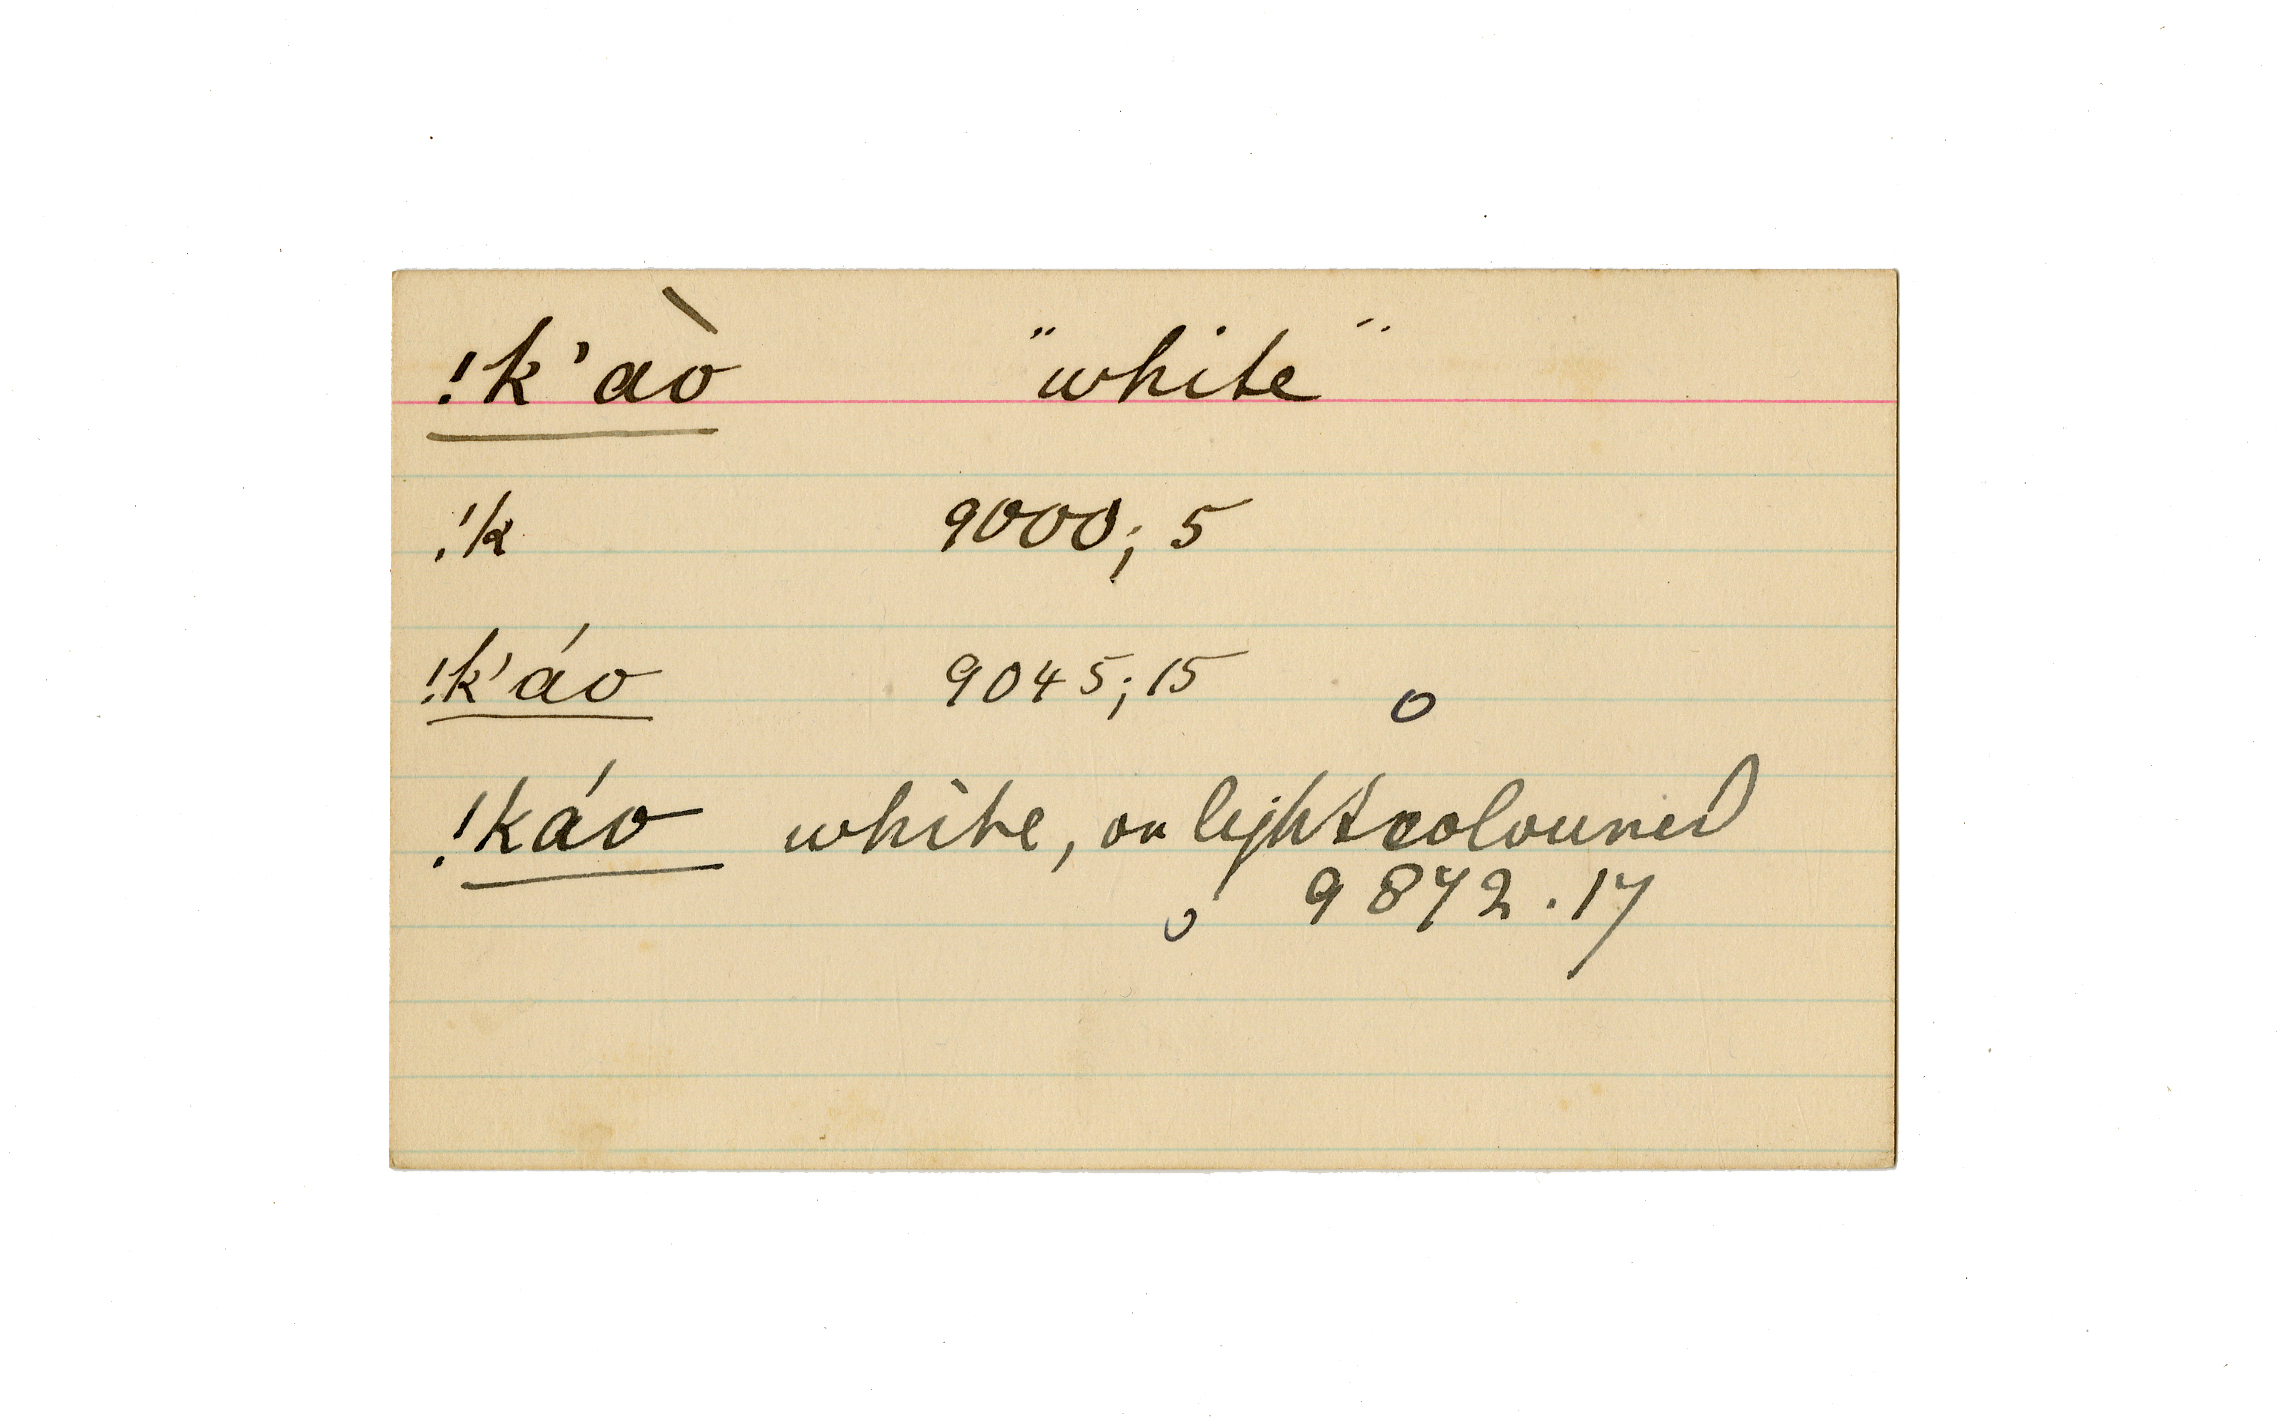 !k'aò "white"
!k 9000; 5
!k'áo 9045; 15
o
!káo white, or lightcoloured
o 9872.17